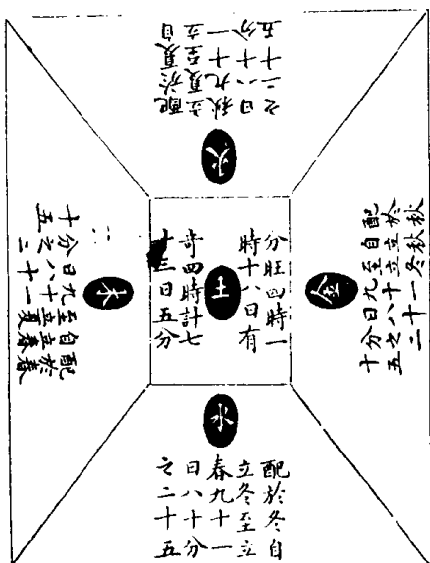 配於夏自
立夏至立
秋九十一
日八十分
之二十五
火
配於秋
自立秋
至立冬
九十一
日八十
分之二
十五
金
分旺四時一
時十八日有
土
奇四時計七
十三日五分
木
配於春
自立春
至立夏
九十一
日八十
分之二
十五
水
配於冬自
立冬至立
春九十一
日八十分
之二十五